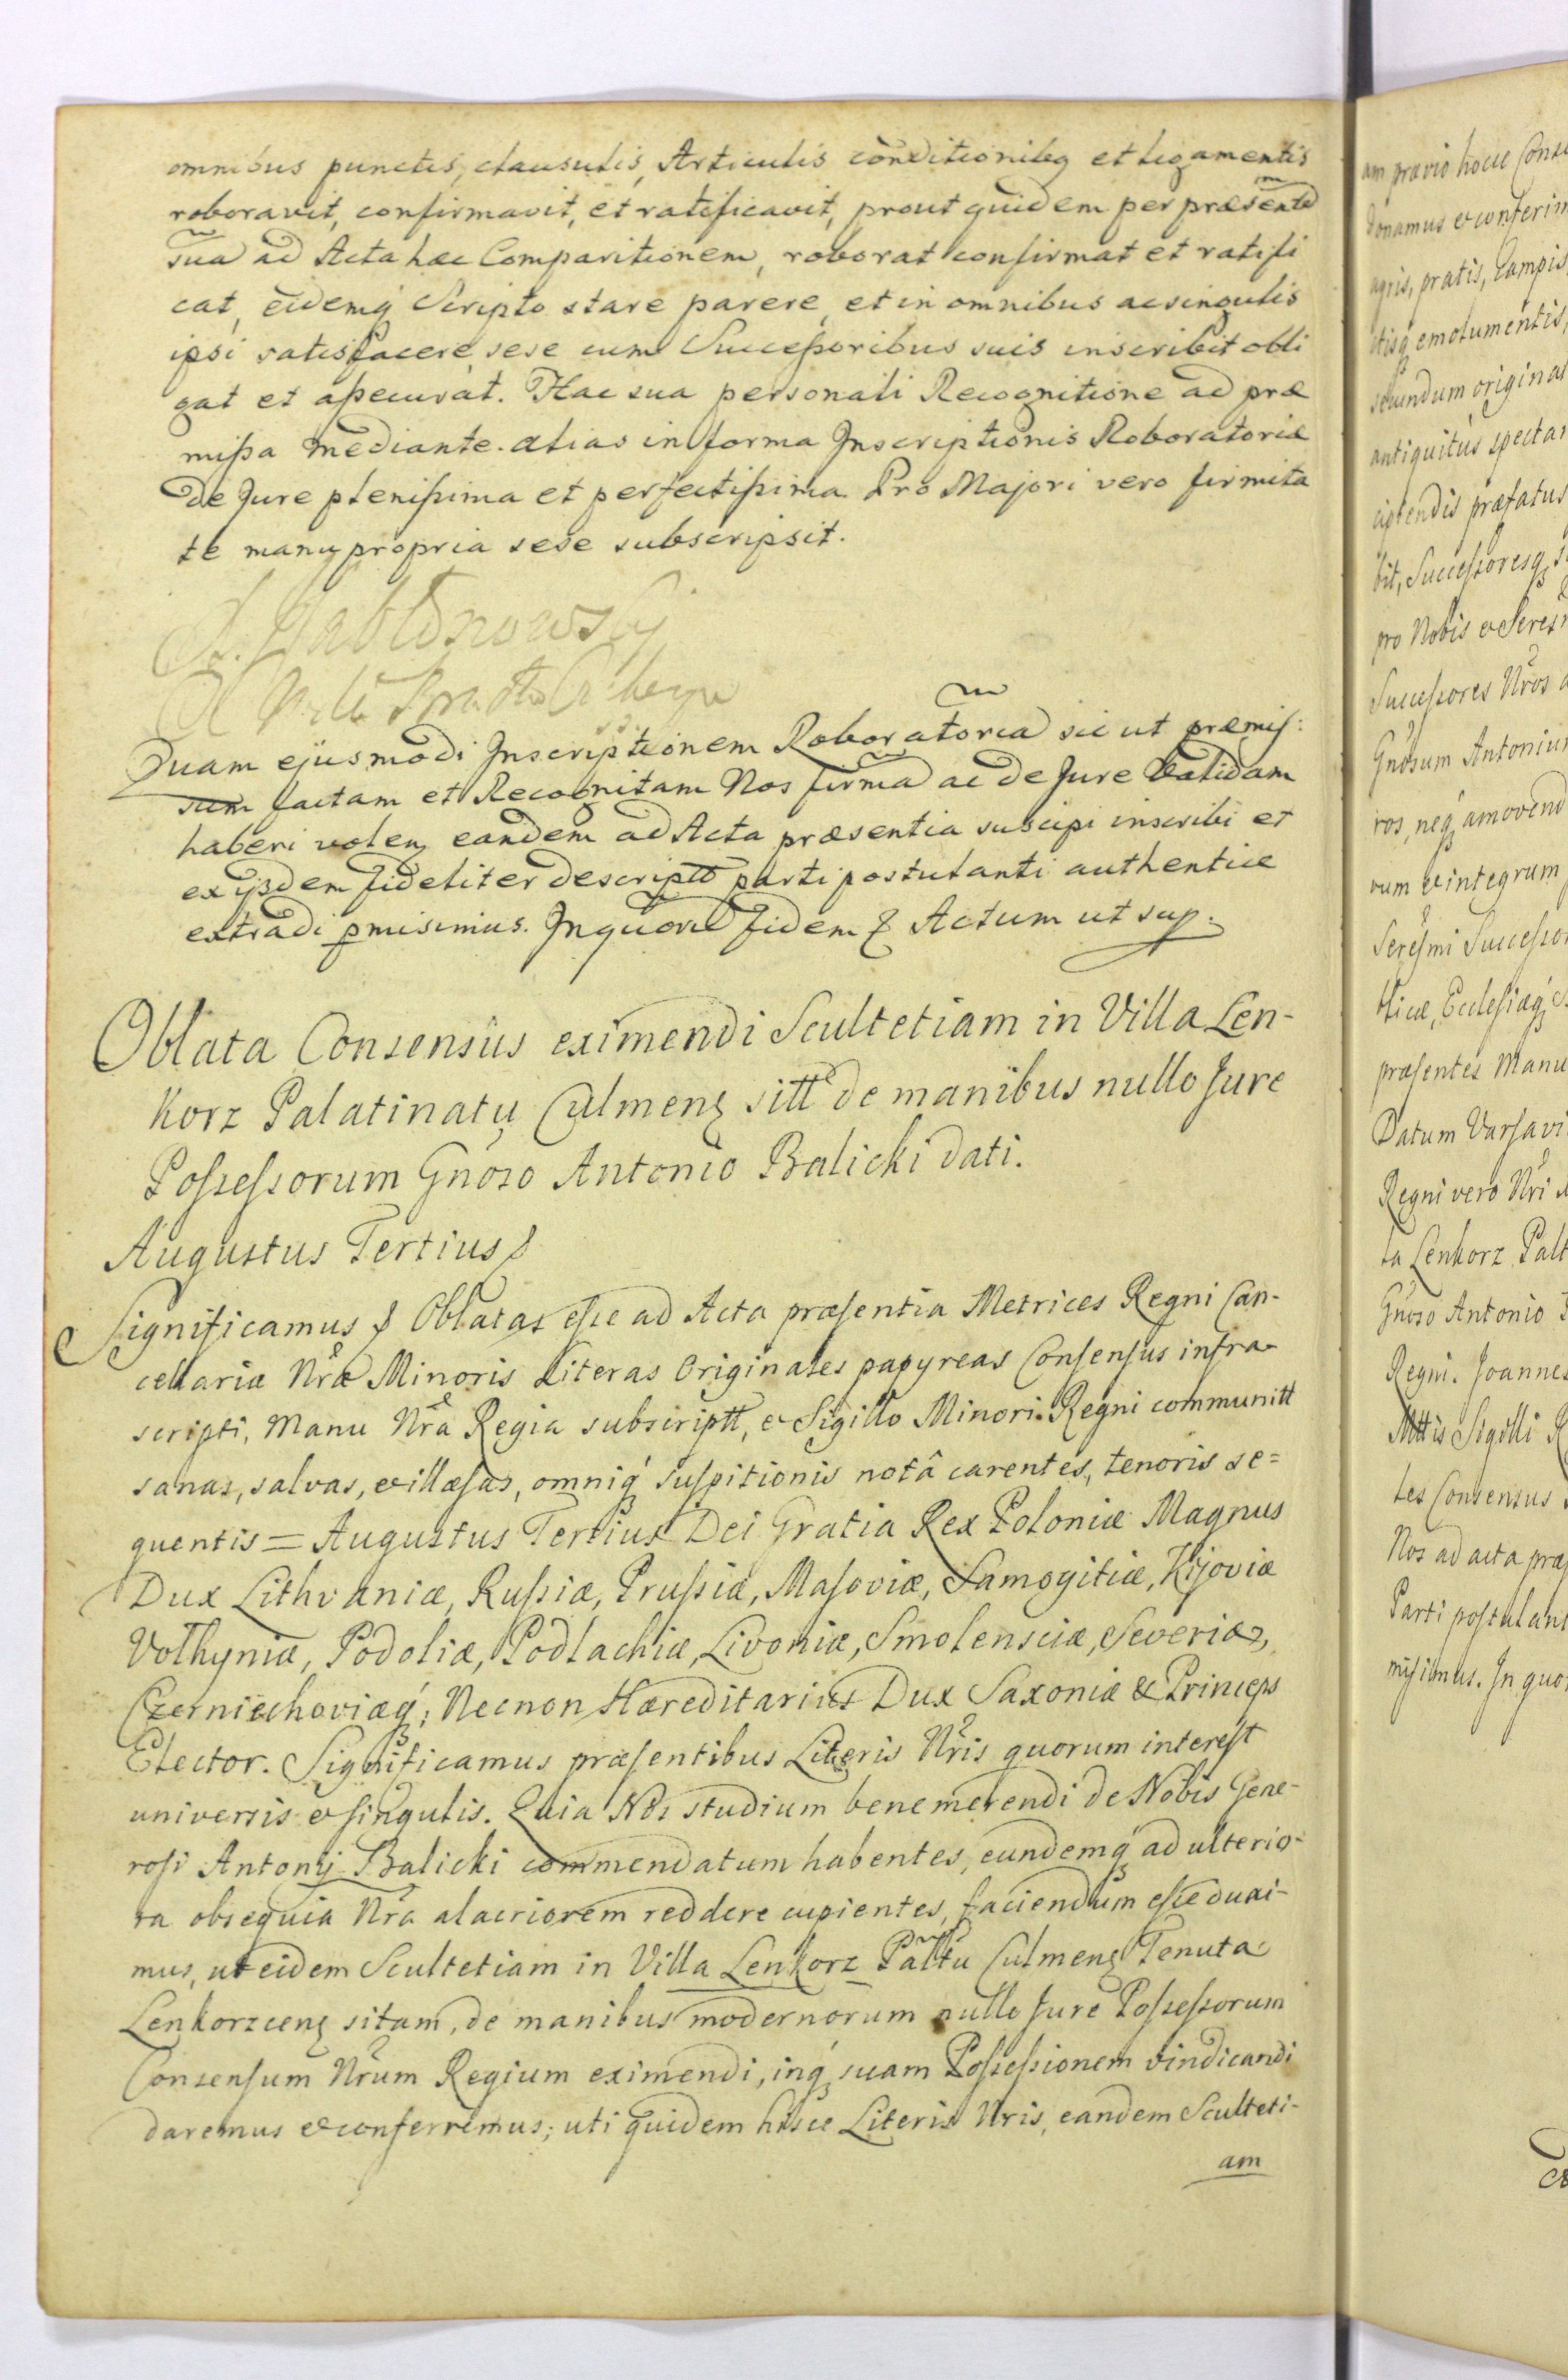 omnibus punctis, clausulis, Articulis conditionibq et ligamentis
roboravit, confirmavit, et ratificavit, prout quidem per præsente
sua ad Acta hæc Comparitionem, roborat confirmat et ratifi
cat, eidemq Scripto stare parere, et in omnibus ac singulis
ipsi satisfacere, sese cum Successoribus suis inscribit obli
gat et assecurat. Hac sua personali Recognitione ad præ
missa mediante. alias in forma Inscriptionis Roboratoriæ
de Jure plenissima et perfectissima Pro Majori vero firmita
te manu propria sese subscripsit.
Jabłonowsky
Quam ejusmodi Inscriptionem Roboratoria sic ut præmis:
sum factam et Recognitam Nos firma ac de Jure validam
haberi volen eandem ad Acta præsentia suscipi inscribi et
ex ijsdem fideliter descriptt parti postulanti authentice
extradi pmisimus. In quor fidem & Actum ut sup.
Oblata Consensûs eximendi Scultetiam in Villa Len-
korz Palatinatu Culmen sitt de manibus nullo Jure
Possessorum Gnoso Antonio Balicki dati.
Augustus Tertius &
Significamus & Oblatas esse ad Acta præsentia Metrices Regni Can-
cellariæ Nræ Minoris Literas Originales papyreas Consensûs infra
scripti, Manu Nrâ Regia subscriptt, & Sigillo Minori Regni communitt
sanas, salvas, & illæsas, omniq suspitionis notâ carentes, tenoris se=
quentis = Augustus Tertius Dei Gratia Rex Poloniæ Magnus
Dux Lithvaniæ, Russiæ, Prussiæ, Masoviæ, Samogitiæ, Kijoviæ
Volhyniæ, Podoliæ, Podlachiæ, Livoniæ, Smolensciæ, Severiæ,
Czerniechoviæq; Necnon Hæreditarius Dux Saxoniæ & Princeps
Elector. Significamus præsentibus Literis Nris quorum interest
universis & singulis. Quia Nos studium bene merendi de Nobis Gene-
rosi Antonij Balicki commendatum habentes, eundemq ad ulterio-
ra obsequia Nra alacriorem reddere cupientes, faciendum esse duxi-
mus, ut eidem Scultetiam in Villa Lenkorz Palttu Culmen Tenuta
Lenkorzcen sitam, de manibus modernorum nullo Jure Possessorum
Consensum Nrum Regium eximendi, inq suam Possessionem vindicandi
daremus & conferremus; uti quidem hisce Literis Nris, eandem Sculteti-
am
am prævio hocce Conse
donamus & conferim
agris, pratis, Campis
itisq emolumentis,
secundum origina
antiquitus specta
cipiendis præfatus
bit, Successoresq s
pro Nobis & Seres
Successores Nros
Gnosum Antoniu
ros, neq amovend
vum & integrum
Seresmi Successo
blicæ, Ecclesiæq
præsentes Manu
Datum Varsavi
Regni vero Nri
la Lenkorz Palt
Gnoso Antonio
Regni. Joannes
Mttis Sigilli R
tes Consensus
Nos ad acta præ
Parti postulant
misimus. In quo